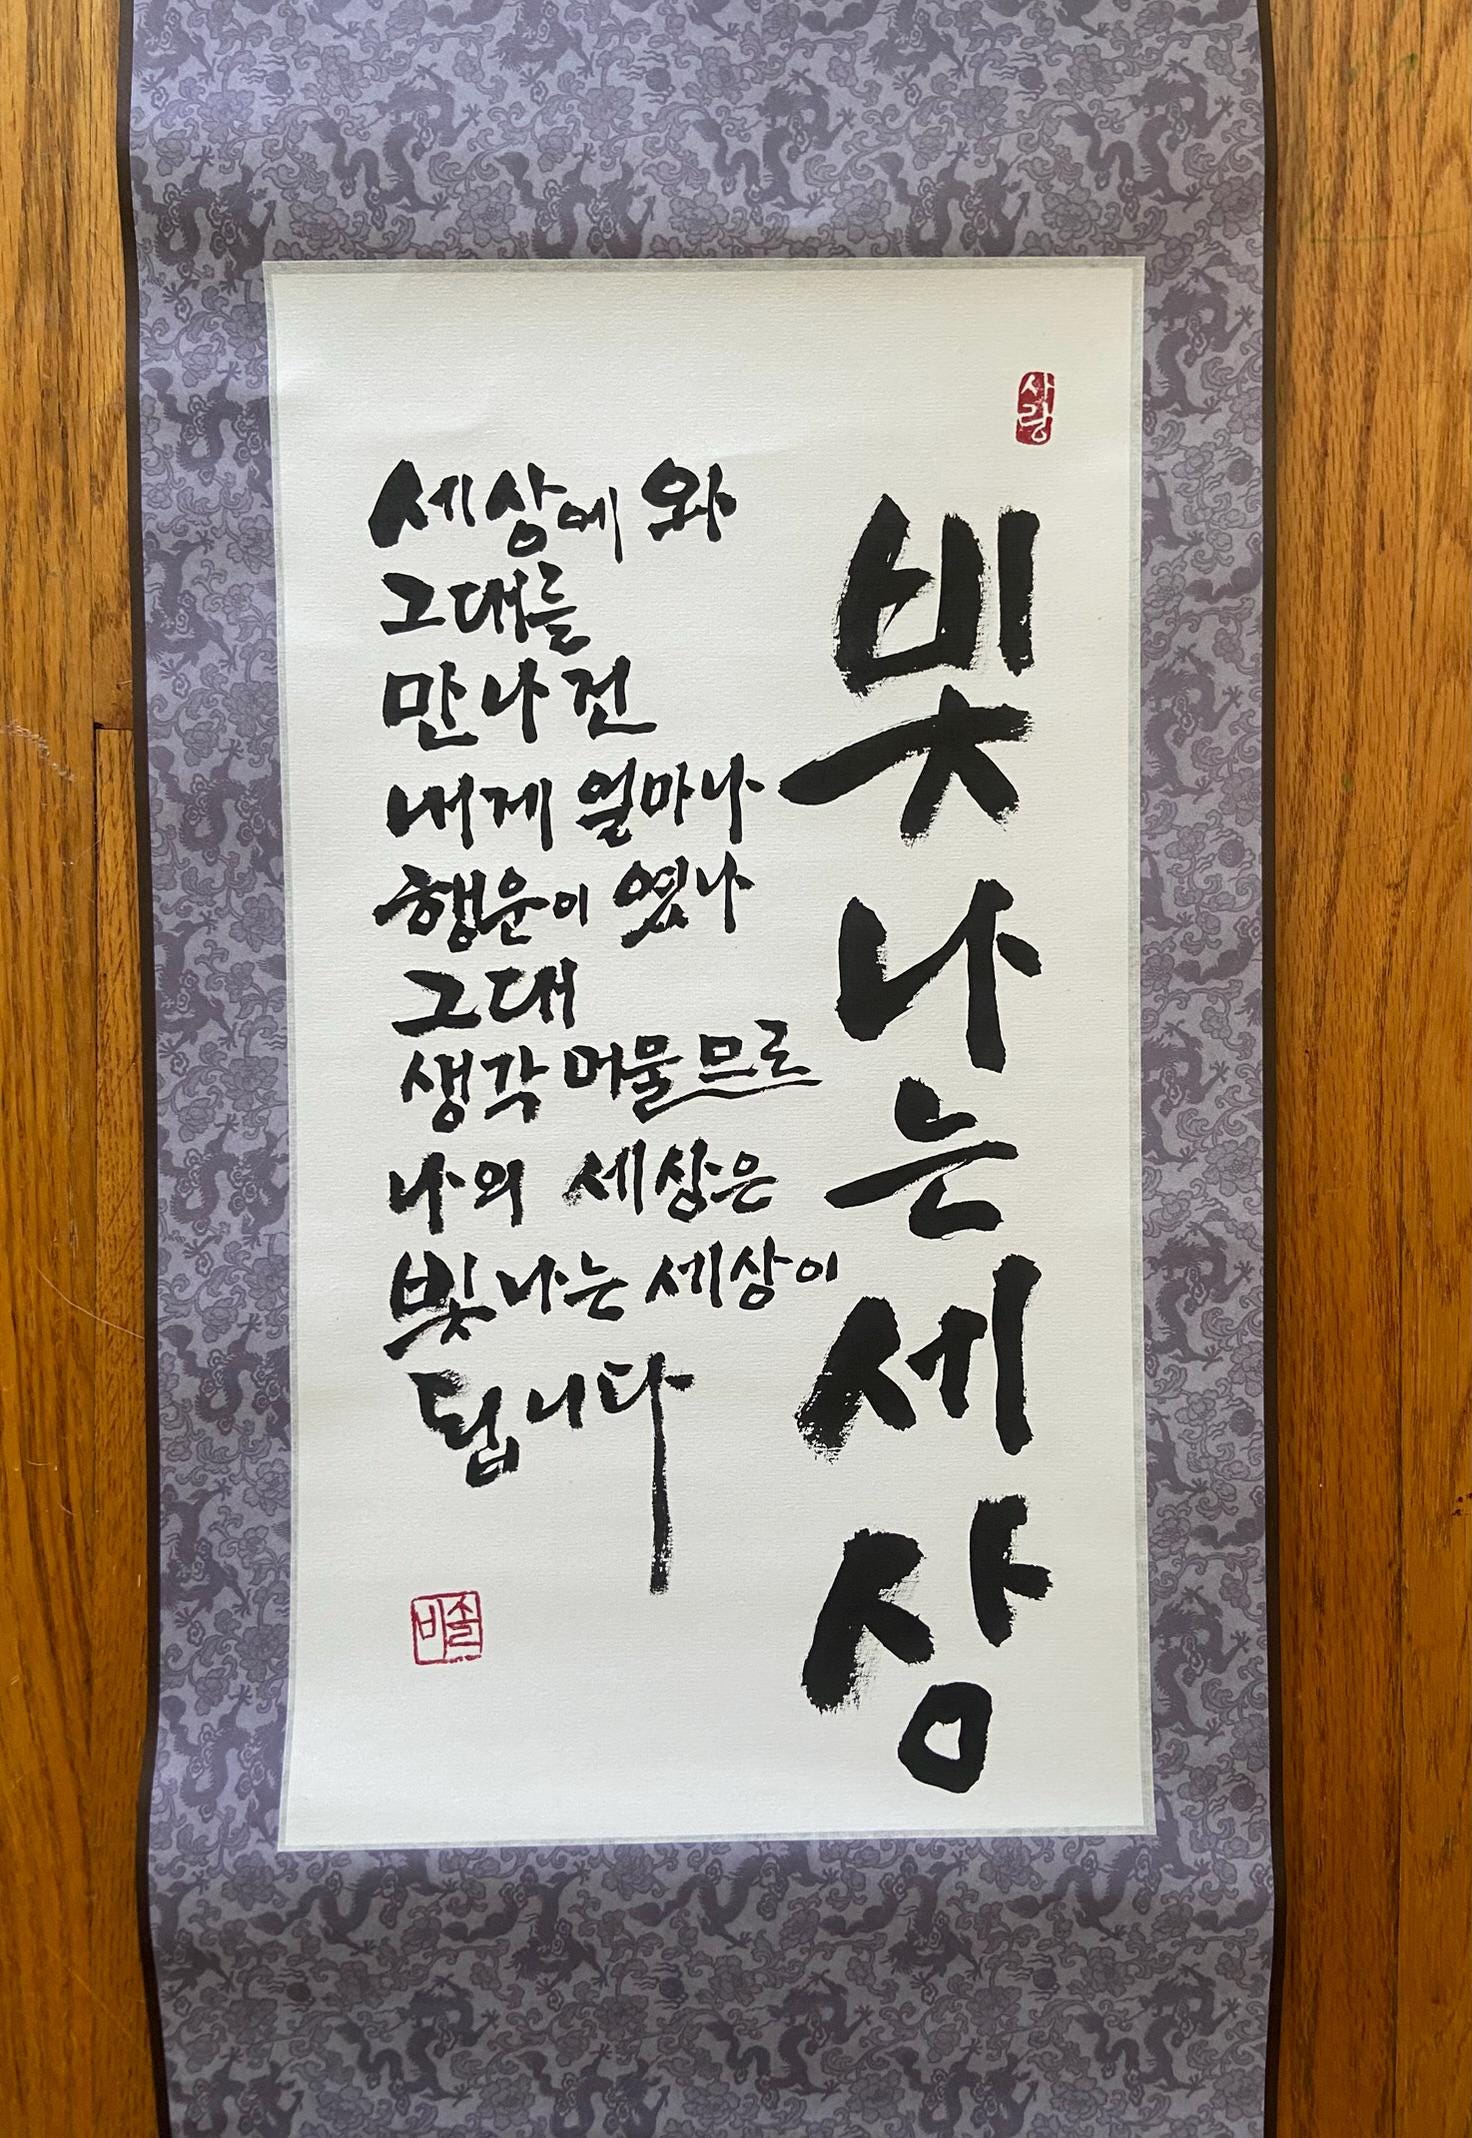 사랑
빛나는세상
세상에 와
그대를
만나건
내게 얼마나
행운이 였나
그대
생각 머물므로
나의 세상은
빛나는 세상이
됩니다